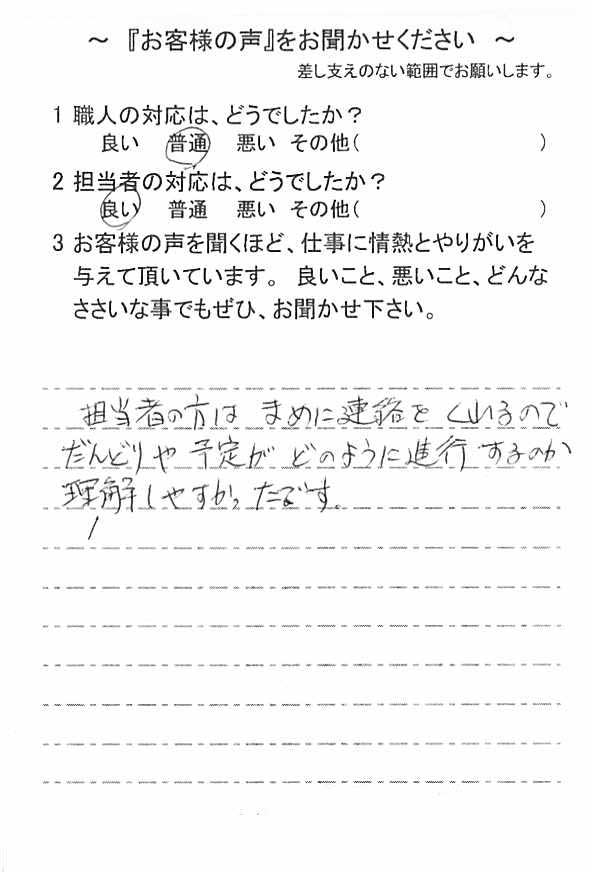 ～『お客様の声』をお聞かせください ～
差し支えのない範囲でお願いします。
1 職人の対応は、どうでしたか？
良い 普通 悪い その他( )
2 担当者の対応は、どうでしたか？
良い 普通 悪い その他( )
3 お客様の声を聞くほど、仕事に情熱とやりがいを
与えて頂いています。 良いこと、悪いこと、どんな
ささいな事でもぜひ、お聞かせ下さい。
担当者の方は まめに連絡を くれるので
だんどりや 予定が どのように進行するのか
理解しやすかったです。